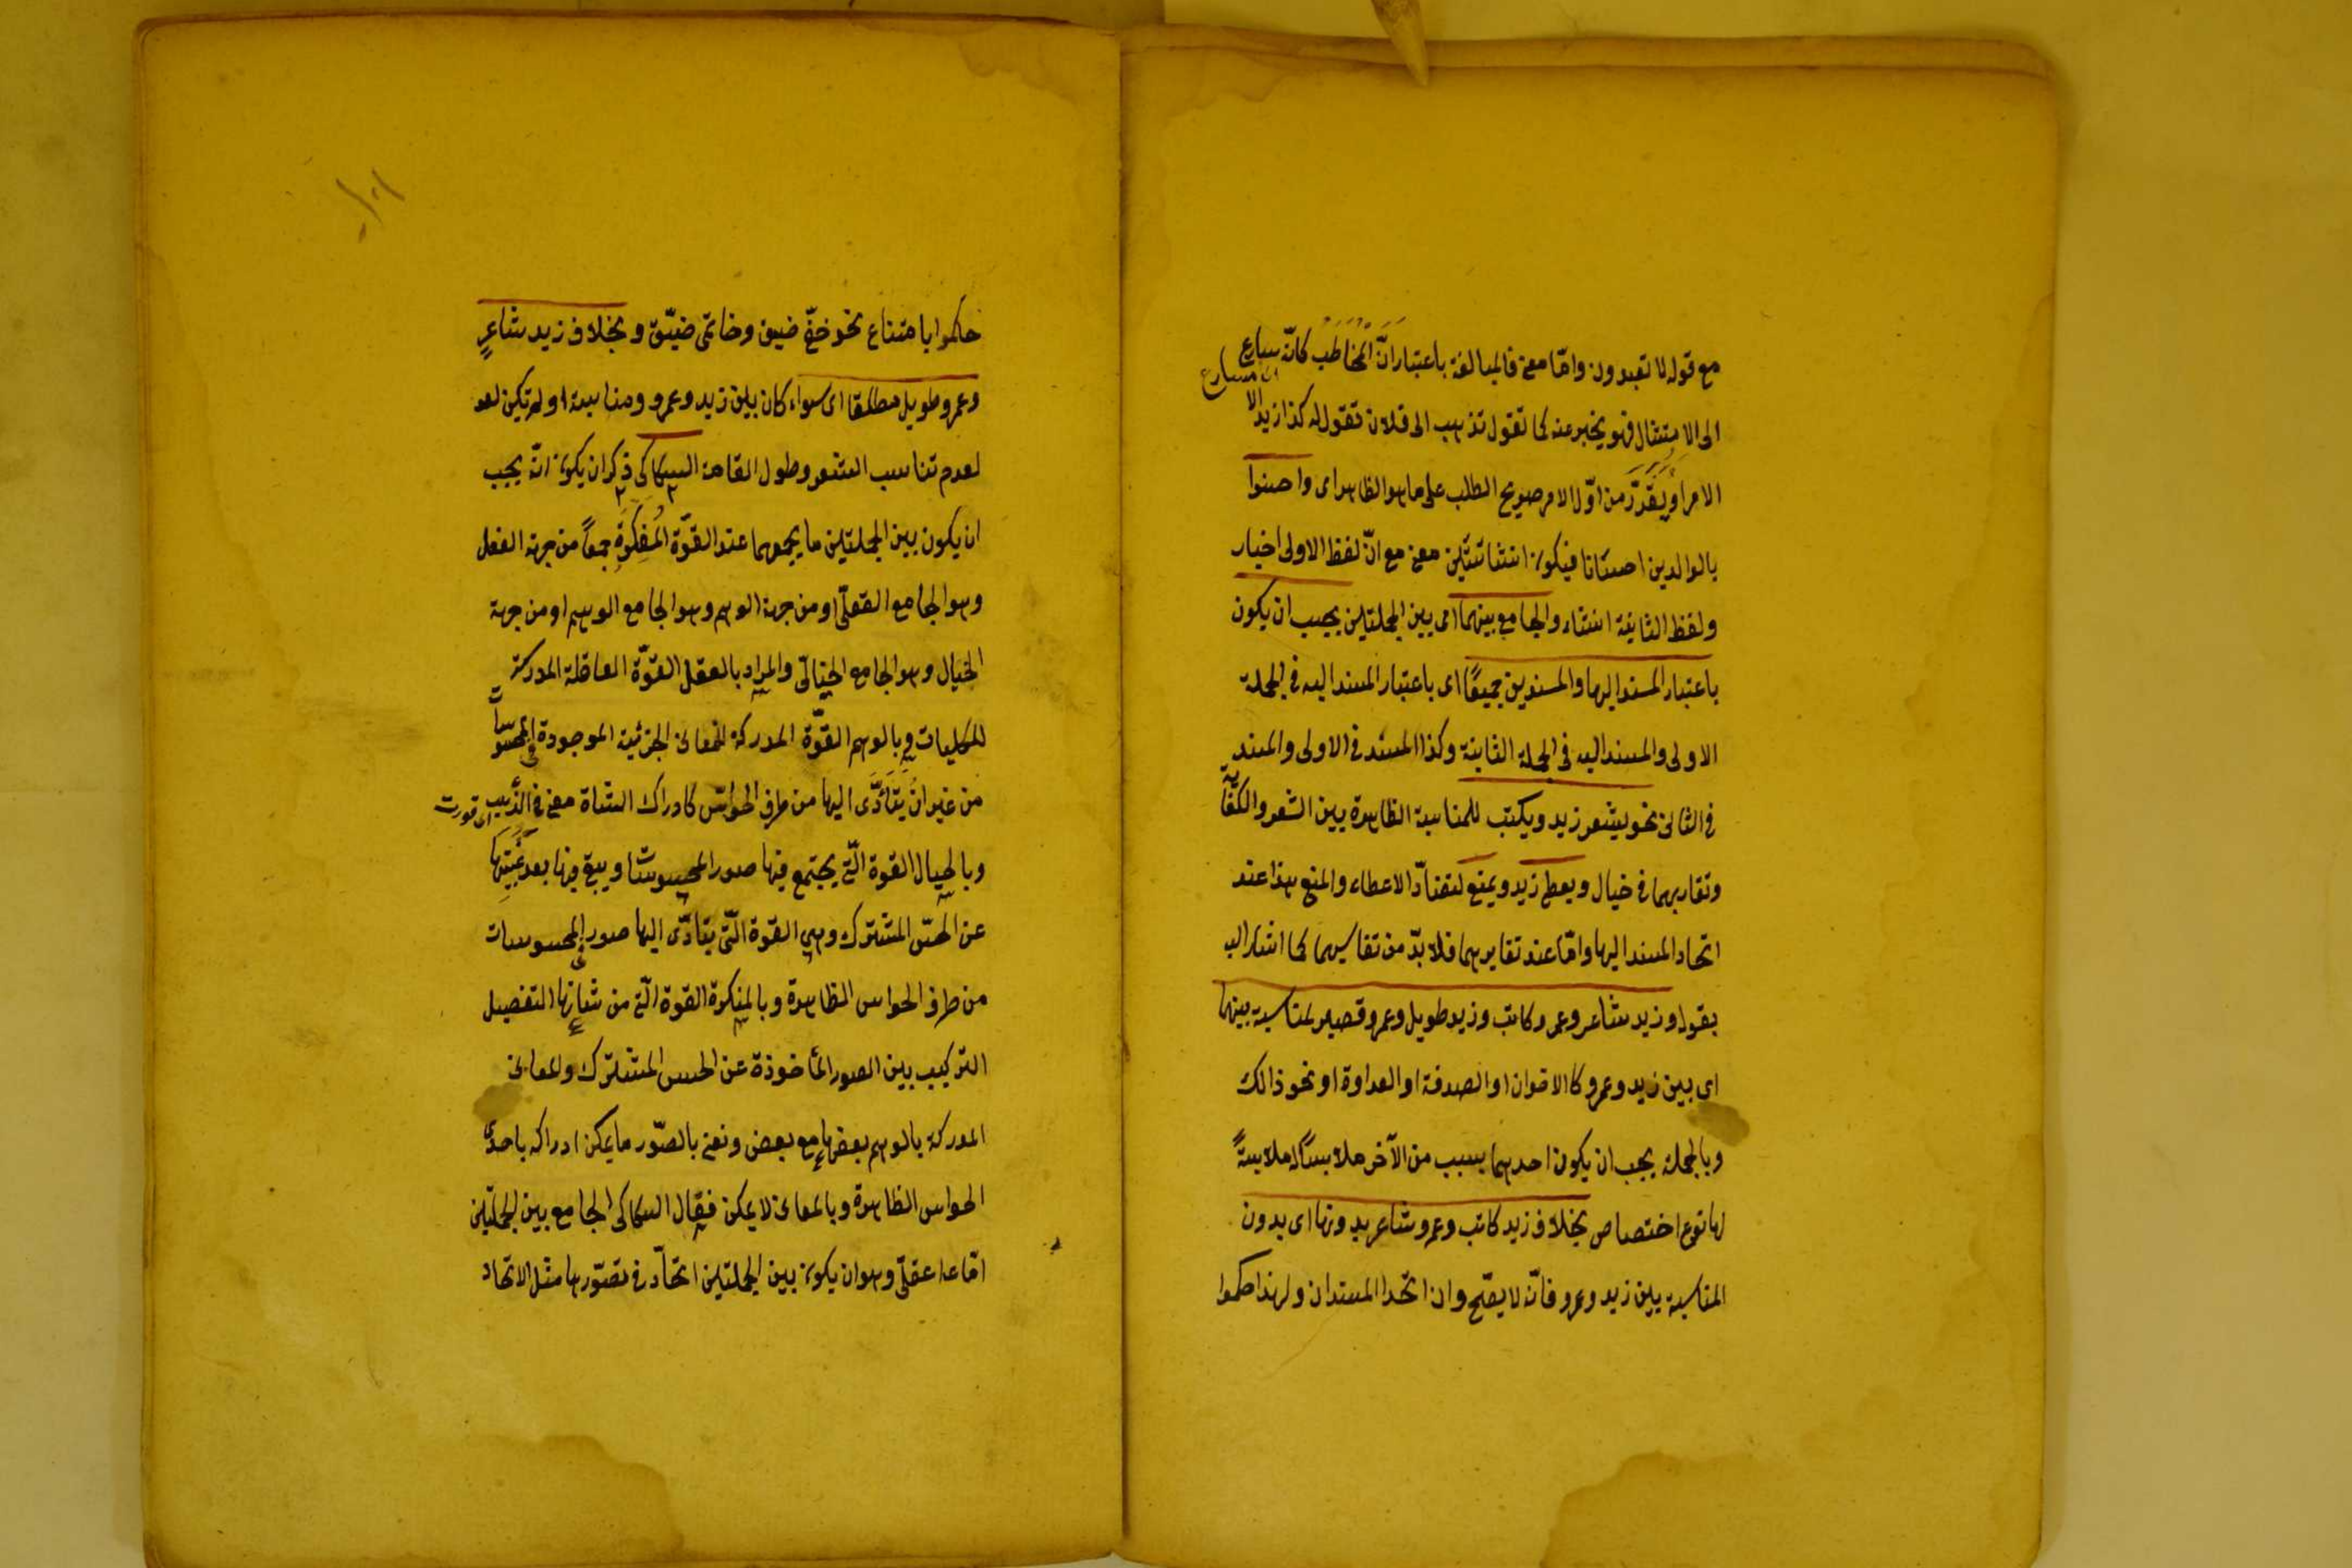 مع قوله لا تعبدون وامّا معنى فالمبالغة باعتبار انّ المخاطب كانّه سارع
الى الامتثال فهو يخبر عنه كما تقول تذهب الى فلان تقول له كذا تريد الا
الامر او يُقدّر من اوّل الامر صريح الطلب على ما هو الظاهر اى واحسنوا
بالوالدين احسانا فيكون انشائتين معنى مع انّ لفظ الاولى اخبار
ولفظ الثانية انشاء والجامع بينهما اى بين الجملتين يجب ان يكون
باعتبار المسند اليها والمسندين جميعًا اى باعتبار المسند اليه فى الجملة
الاولى والمسند اليه فى الجملة الثانية وكذا المسند فى الاولى والمسند
فى الثانى نحو يشعر زيد ويكتب للمناسبة الظاهرة بين الشعر والكتابة
وتقاربهما فى خيال ويعطى زيد ويمنع لتضادّ الاعطاء والمنع هذا عند
اتحاد المسند اليها وامّا عند تغايرهما فلا بدّ من تناسبهما كما اشار اليه
بقوله وزيد شاعر وعمرو كاتب وزيد طويل وعمرو قصير لمناسبة بينهما
اى بين زيد وعمرو كالاخوان او الصدقة او العداوة او نحو ذالك
وبالجملة يجب ان يكون احدهما بسبب من الآخر ملابسًا له ملابسةً
لها نوع اختصاص بخلاف زيد كاتب وعمرو شاعر بدونها اى بدون
المناسبة بين زيد وعمرو فانّه لا يصّح وان اتّحدا المسندان ولهذا حكموا
حاكموا بامتناع نحو خفّى ضيق وخاتمى ضيّق وبخلاف زيد شاعرٍ
وعمرو طويل مطلقا اى سواء كان بين زيد وعمرو ومناسبة او لم تكن لعد
لعدم تناسب الشعر وطول القامة السكاكى ذكر ان يكون انّه يجب
ان يكون بين الجملتين ما يجمعهما عند القوّة المُفكرَةِ جمعاً من جهة العقل
وهو الجامع العقلّى او من جهة الوهم وهو الجامع الوهم او من جهة
الخيال وهو الجامع الخيالّى والمراد بالعقل القوّة العاقلة المدركة
للكليات وبالوهم القوّة المدركة للمعانى الجزئية الموجودة فى المحسوسات
من غير ان يَتَأَدَّى اليها من طرق الحواس كادراك الشاة معنى فى الذّيب
وبالخيال القوة الّتى يجتمع فيها صور المحسوسات ويبقى فيها بعد غَيْبَتِها
عن الحسّ المشترك وهى القوة الّتى يتادّى اليها صور المحسوسات
من طرق الحواس الظاهرة وبالمفكرة القوة الّتى من شأنها التفصيل
التركيب بين الصور المأخوذة عن الحس المشترك والمعانى
المدركة بالوهم بعضها مع بعض ونعنى بالصّور ما يمكن ادراكه باحدى
الحواس الظاهرة وبالمعانى لا يمكن فقال السكاكى الجامع بين الجملتين
امّا عقلّى وهو ان يكون بين الجملتين اتحادّ فى تصوّرها مثل الاتحاد